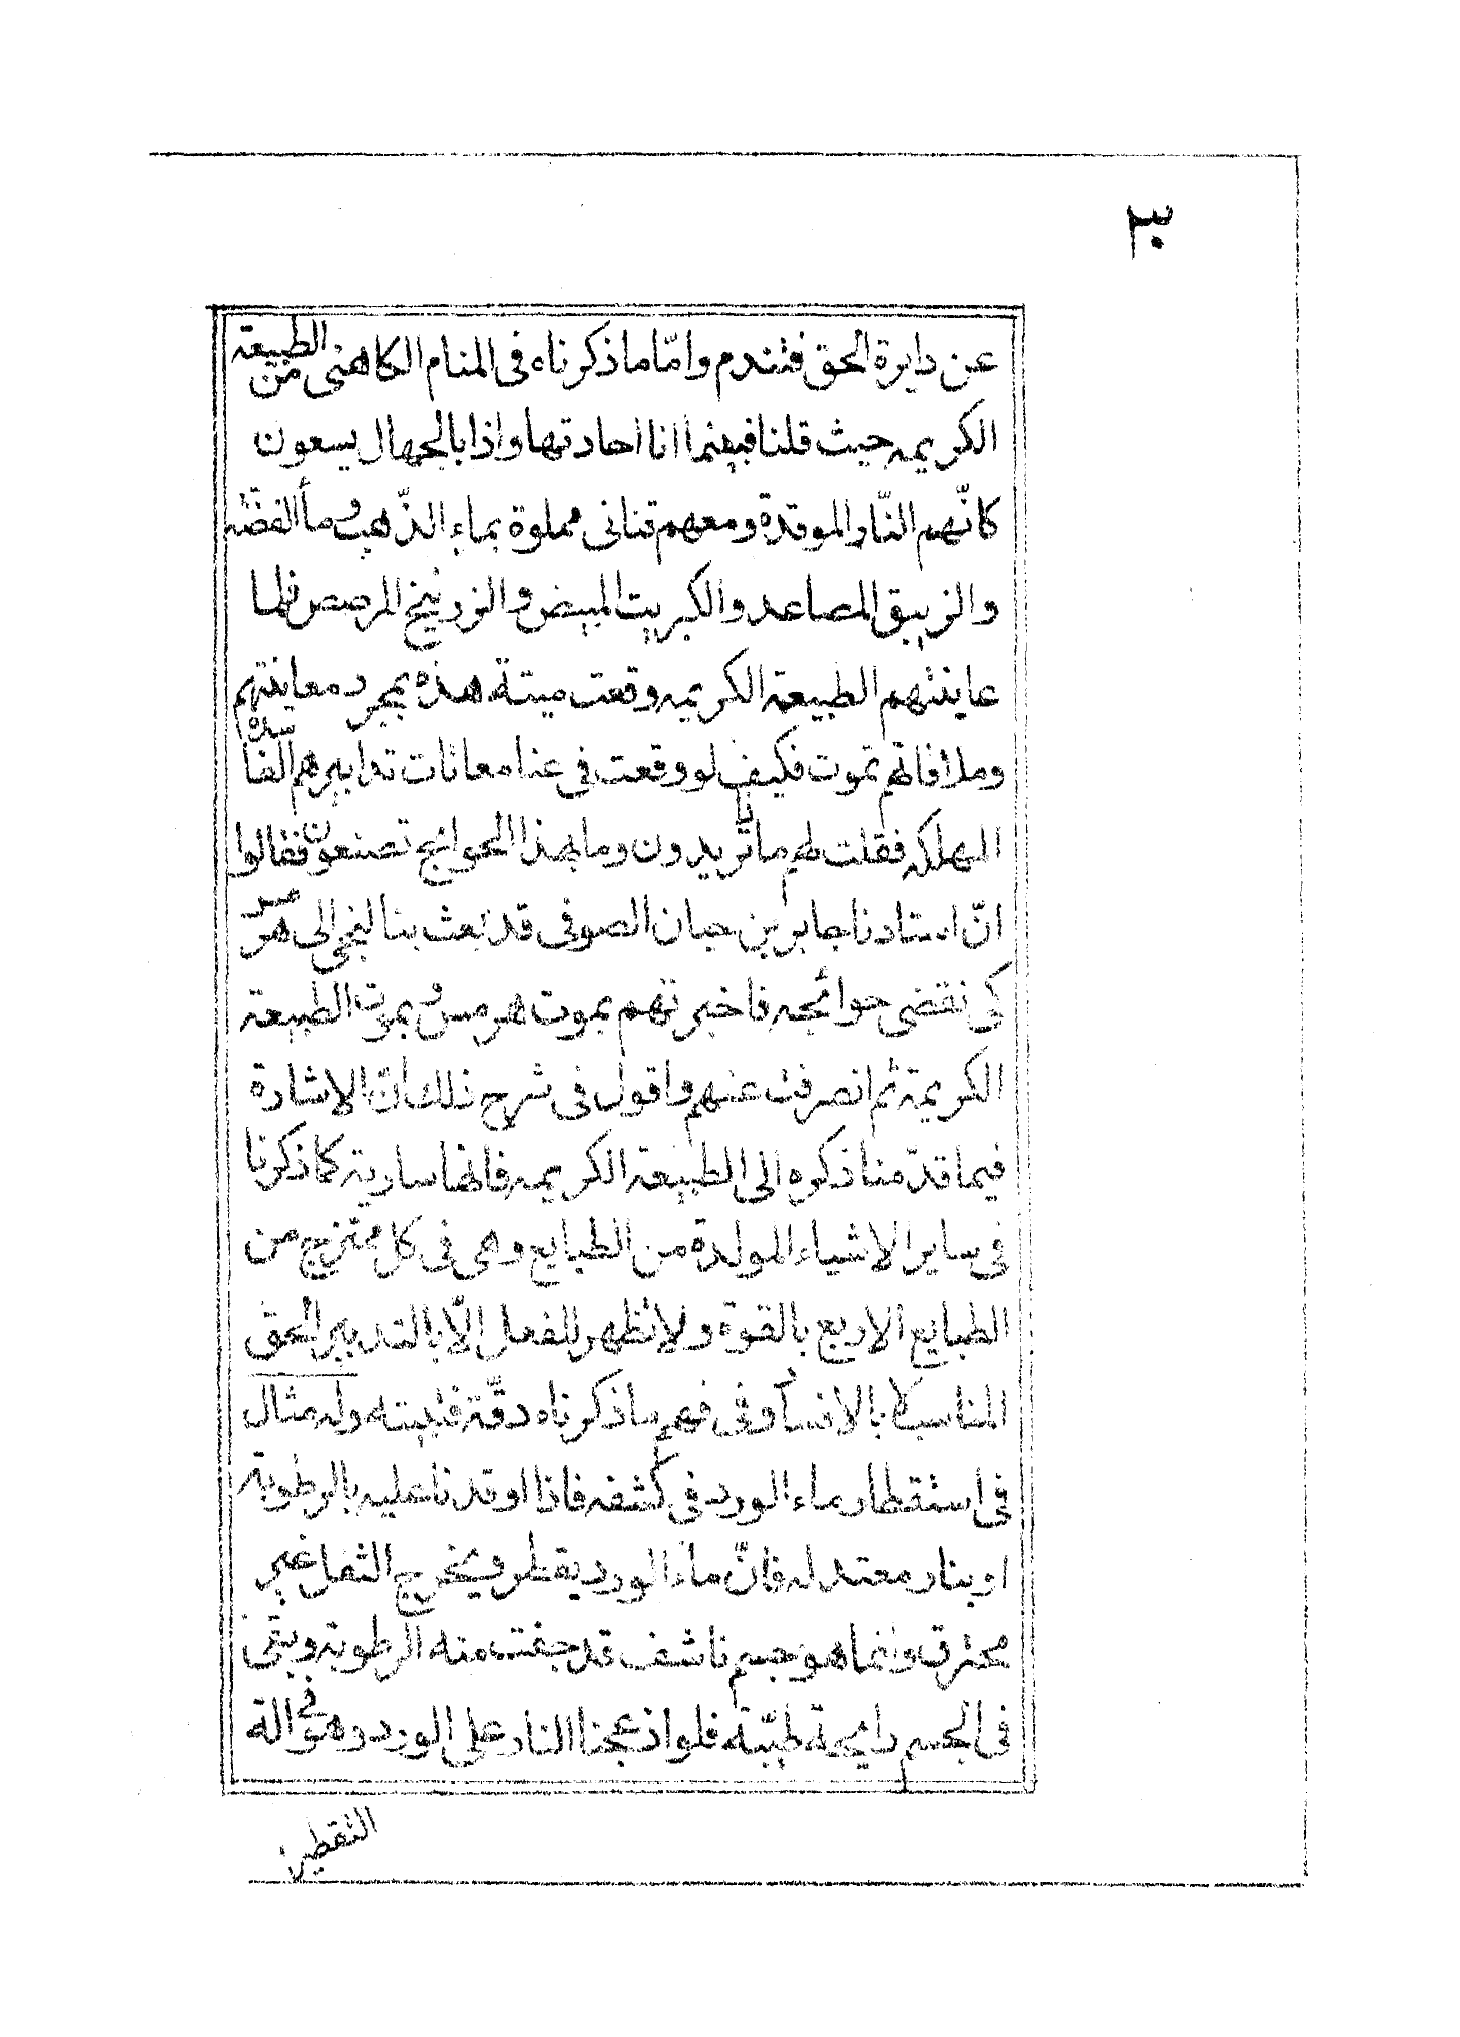 ٣٠
عن دايرة الحق فتندم وامّا ما ذكرناه فى المنام الكاهنى من الطبيعة
الكريمه حيث قلنا فبينما انا احادتها واذا بالجهال يسعون
كانّهم النّار الموقدة ومعهم قنانى مملوة بماء الذّهب وماء الفضّة
والزيبق المصاعد والكبريت المبيض والزرنيخ المرصص فلما
عاينتهم الطبيعة الكريمه وقعت ميتة هذه بمجرد معاينتهم
وملاقاتهم تموت فكيف لو وقعت فى عنا معانات تدابيرهم الفاسدة
المهلكه فقلت لهم ما تريدون وما بهذا الحوائج تصنعون فقالوا
انّ استادنا جابر بن حيان الصوفى قد بعث بنا لنجى الى هرمس
كى نقضى حوائجه فاخبرتهم بموت هرمس وبموت الطبيعة
الكريمة ثم انصرفت عنهم واقول فى شرح ذلك انّ الاشارة
فيما قدّمنا ذكره الى الطبيعة الكريمه فانها سارية كما ذكرنا
فى ساير الاشياء المولدة من الطبايع وهى فى كل ممتزج من
الطبايع الاربع بالقوة ولا تظهر للفعل الّا بالتدبير الحق
المناسب لا بالافساد وفى فهم ما ذكرناه دقّة فتثبته وله مثال
فى استقطار ماء الورد فى كشفه فاذا اوقدنا عليه بالرطوبة
او بنار معتدله فانّ ماء الورد يقطر ويخرج الثفل غير
محترق وانما هو جسم ناشف قد جفت منه الرطوبة وبقى
فى الجسم رايحة طيّبة فلو ازعجنا النار على الورد وهو فى الة
التقطير